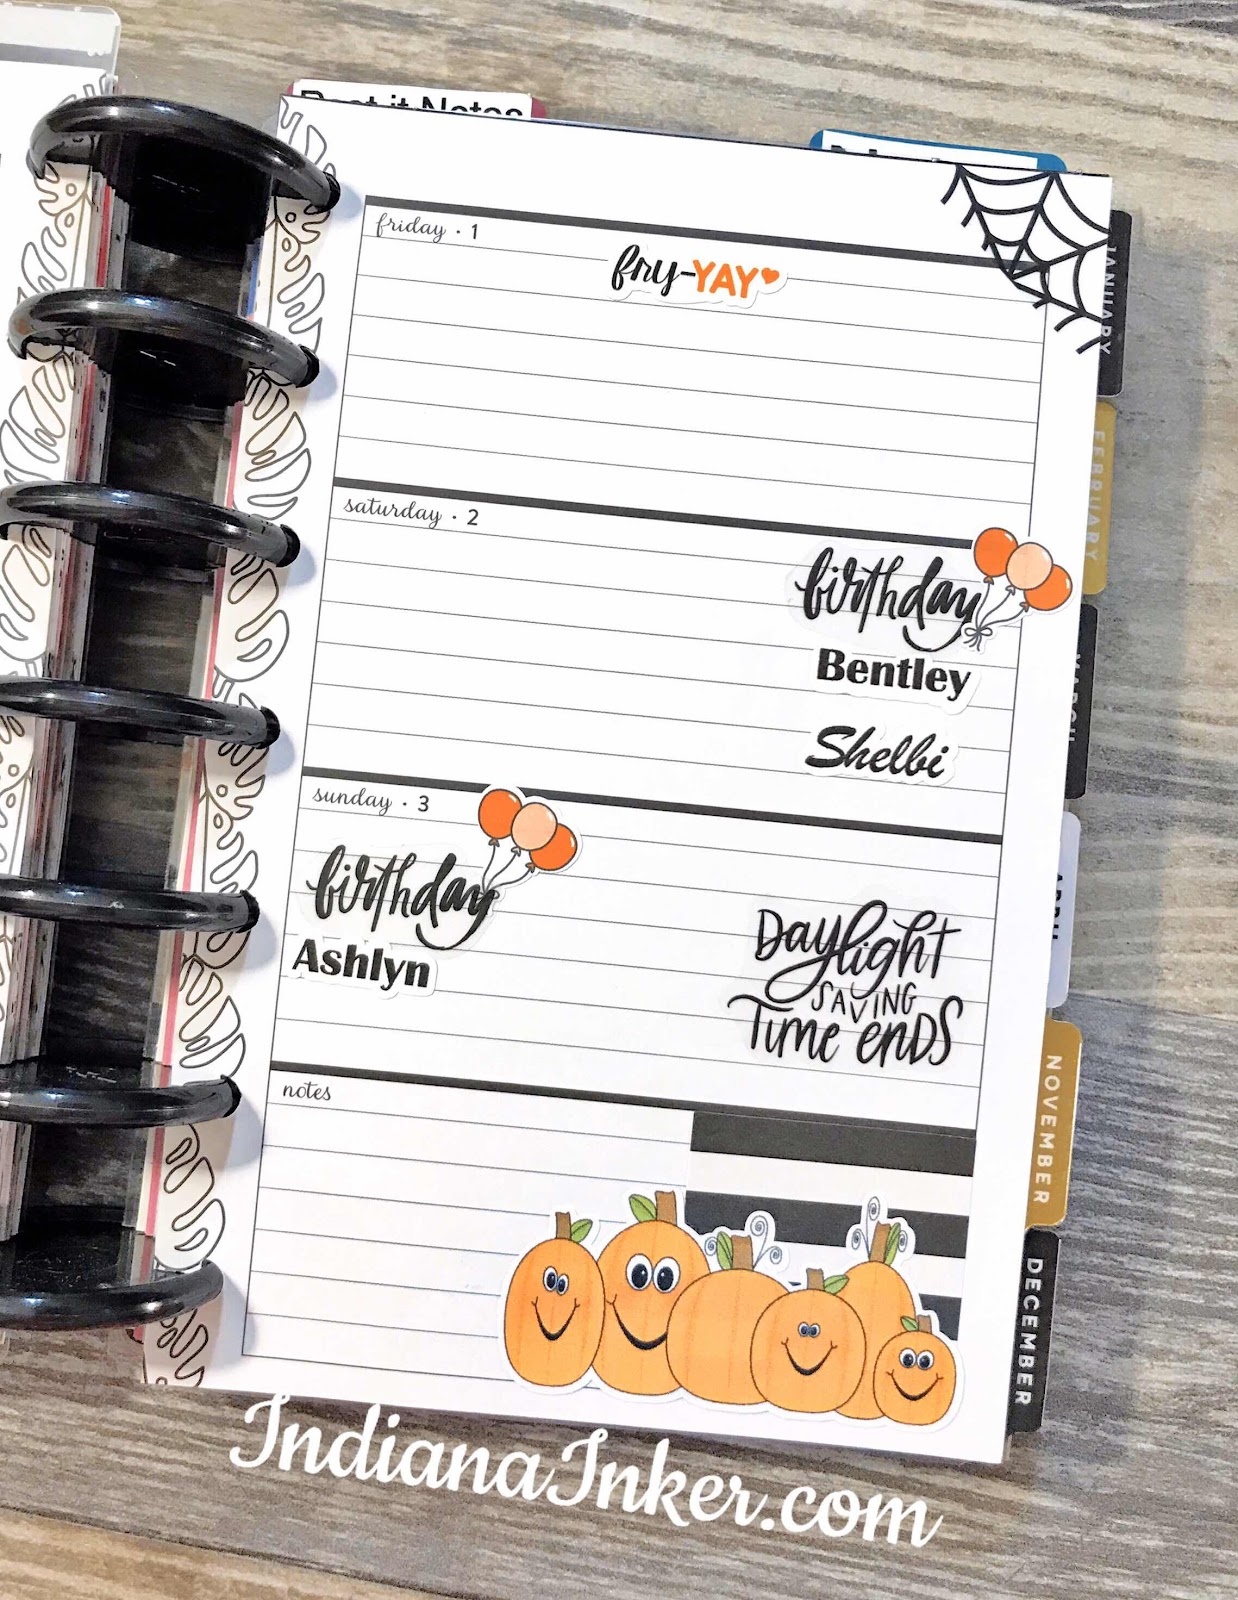 Post it Notes
friday · 1
fry-YAY
JANUARY
FEBRUARY
saturday · 2
birthday
Bentley
Shelbi
MARCH
sunday · 3
birthday
Ashlyn
Daylight
SAVING
Time ENDS
APRIL
notes
NOVEMBER
DECEMBER
IndianaInker.com